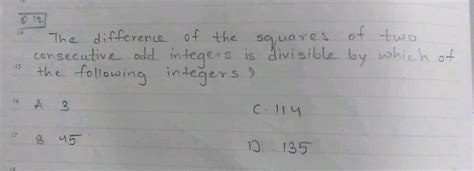 Q.12
14 The difference of the squares of two
consecutive odd integers is divisible by which of
15 the following integers?
16 A 3 C. 114
17 B 45 D 135